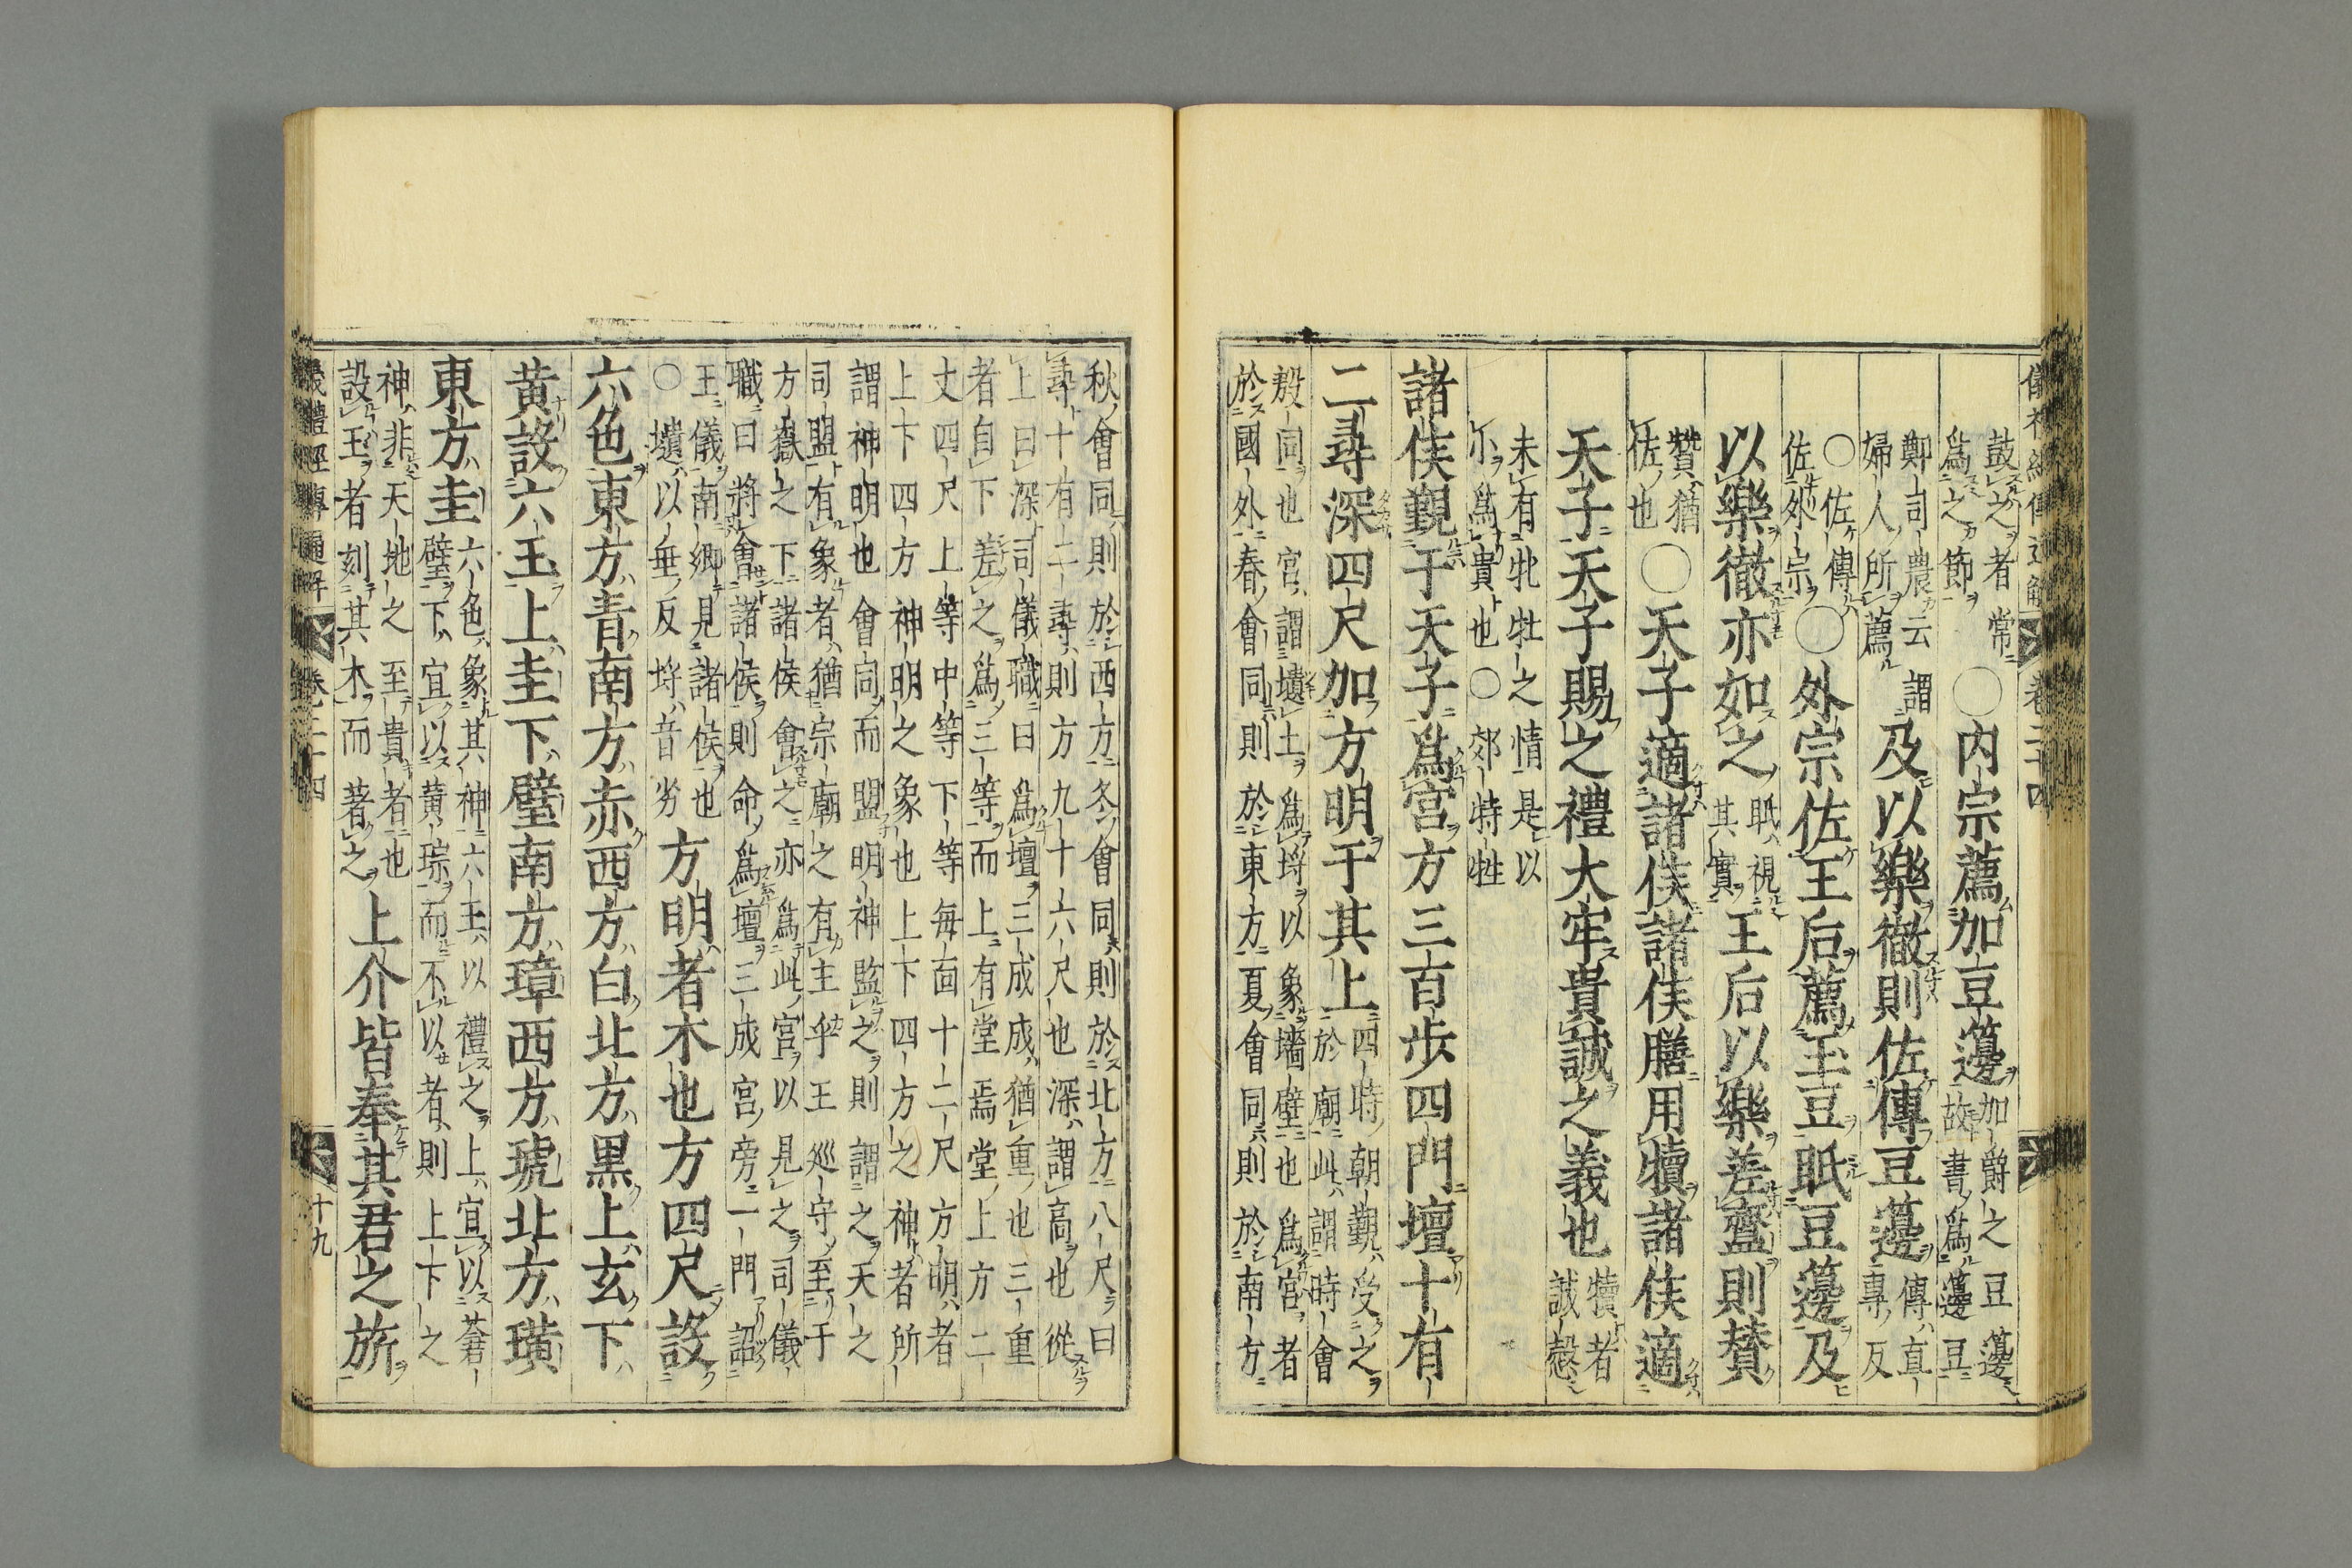 鼓之者常
爲之節
〇内宗薦加豆籩
加爵之豆籩
故書爲籩豆
鄭司農云謂
婦人所薦
及以樂徹則佐傳豆籩
傳直
專反
〇佐傳
佐外宗
〇外宗佐王后薦玉豆眡豆籩及
以樂徹亦如之
眡視
其實
王后以樂羞齍則賛
贊猶
佐也
〇天子適諸侯諸侯膳用犢諸侯適
天子天子賜之禮大牢貴誠之義也
犢者
誠慤
未有牝牡之情是以
小爲貴也〇郊特牲
諸侯覲于天子爲宮方三百步四門壇十有
二尋深四尺加方明于其上
四時朝覲受之
於廟此謂時會
殷同也宮謂壝土爲埒以象墻壁也爲宮者
於國外春會同則於東方夏會同則於南方
秋會同則於西方冬會同則於北方八尺曰
尋十有二尋則方九十六尺也深謂高也從
上曰深司儀職曰爲壇三成成猶重也三重
者自下差之爲三等而上有堂焉堂上方二
丈四尺上等中等下等每面十二尺方明者
上下四方神明之象也上下四方之神者所
謂神明也會同而盟明神監之則謂之天之
司盟有象者猶宗廟之有主乎王巡守至于
方嶽之下諸侯會之亦爲此宮以見之司儀
職曰將會諸侯則命爲壇三成宮旁一門詔
王儀南鄉見諸侯也
〇壝以垂反埒音劣
方明者木也方四尺設
六色東方青南方赤西方白北方黑上玄下
黃設六玉上圭下璧南方璋西方琥北方璜
東方圭
六色象其神六玉以禮之上宜以蒼
璧下宜以黃琮而不以者則上下之
神非天地之至貴者也
設玉者刻其木而著之
上介皆奉其君之旂
儀禮經傳通解
卷二十四
十九